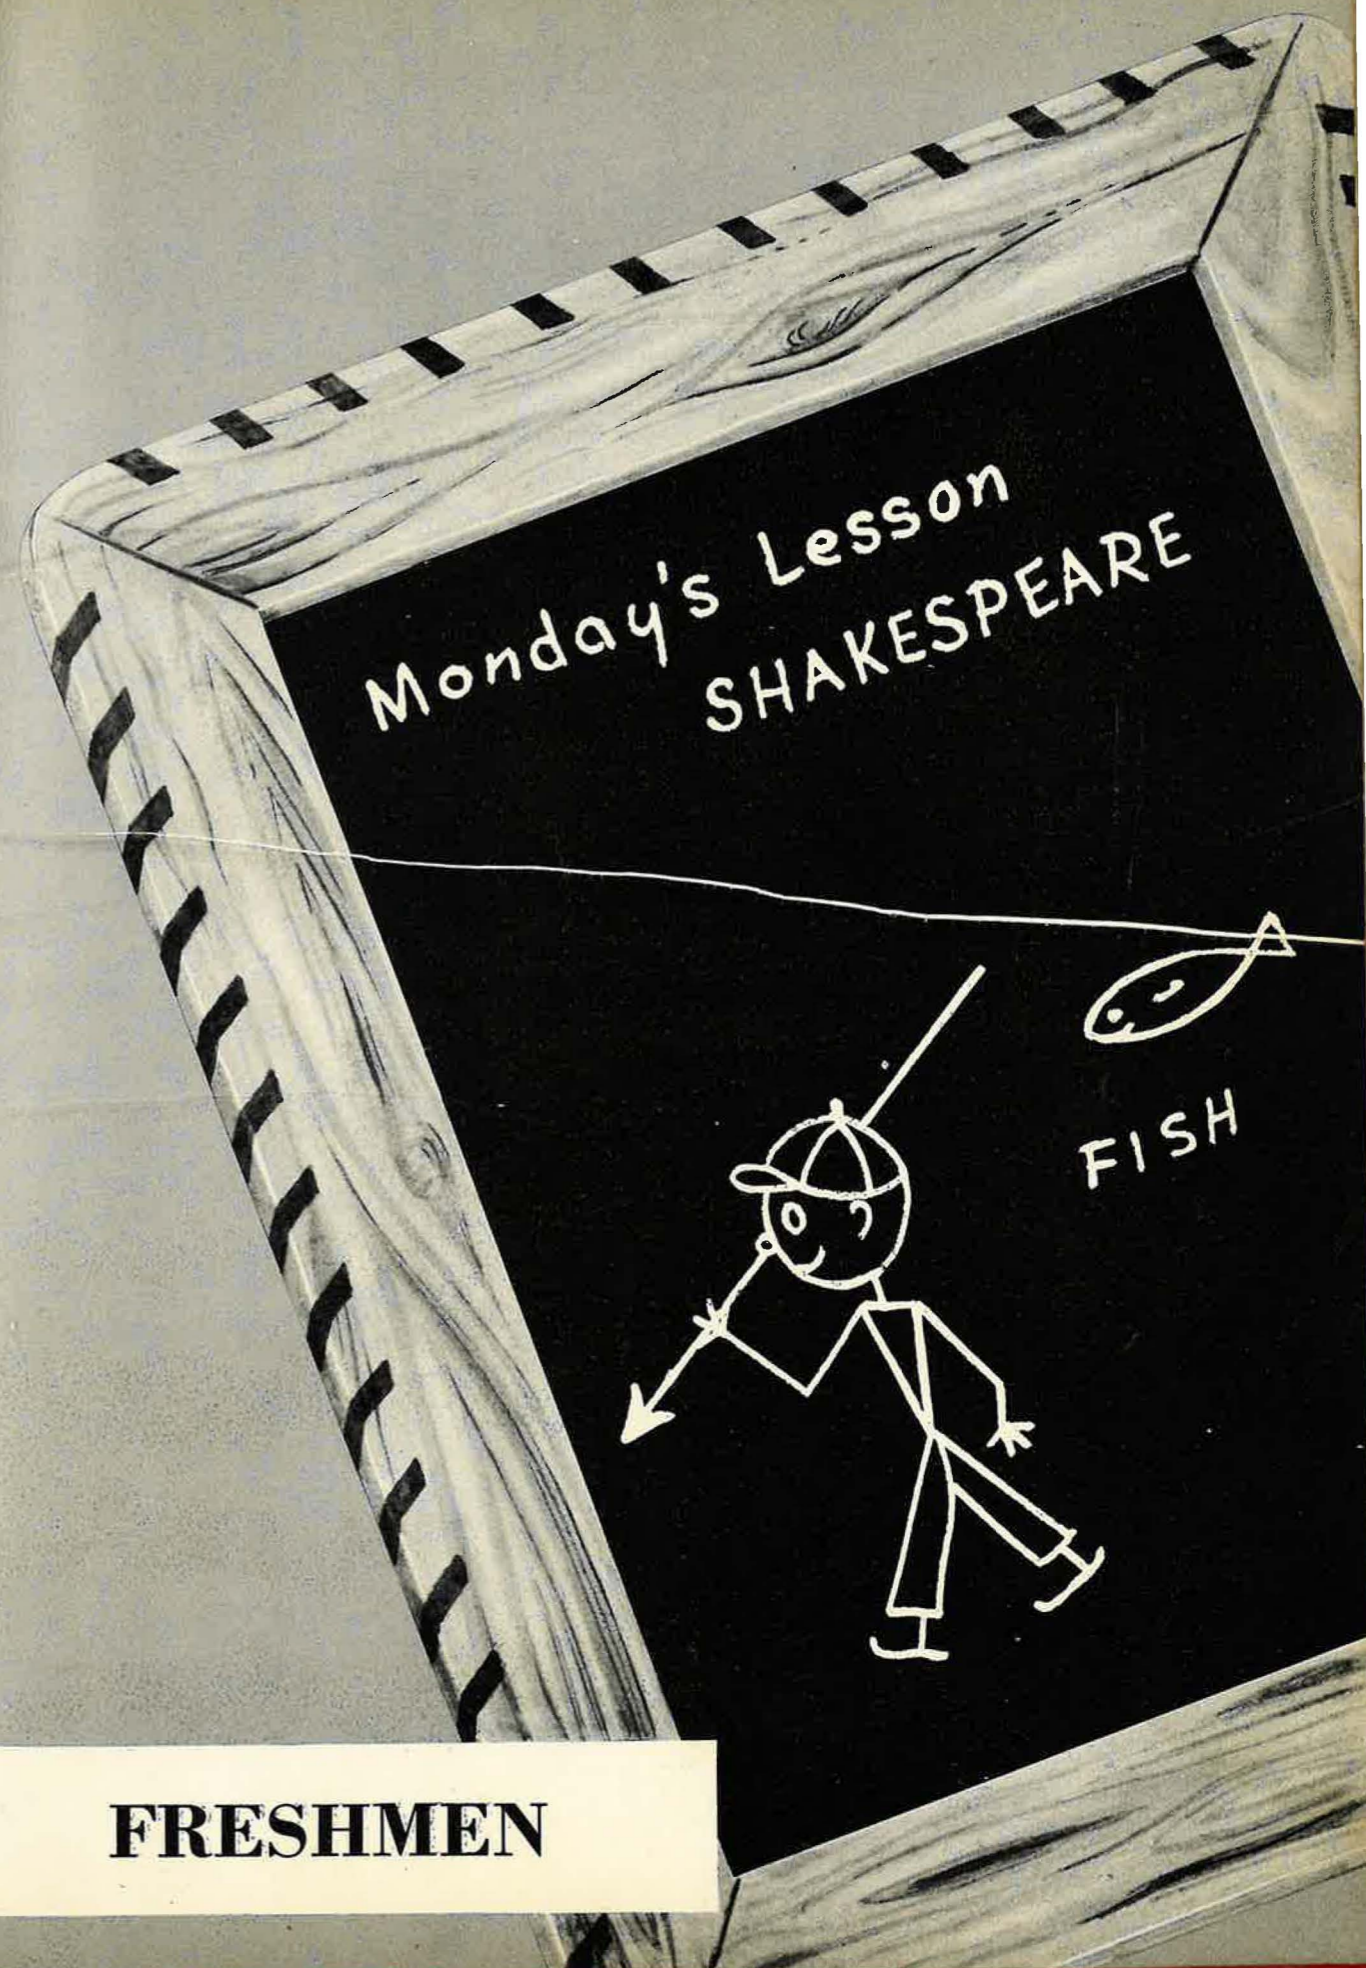 Monday's Lesson
SHAKESPEARE
FISH
FRESHMEN